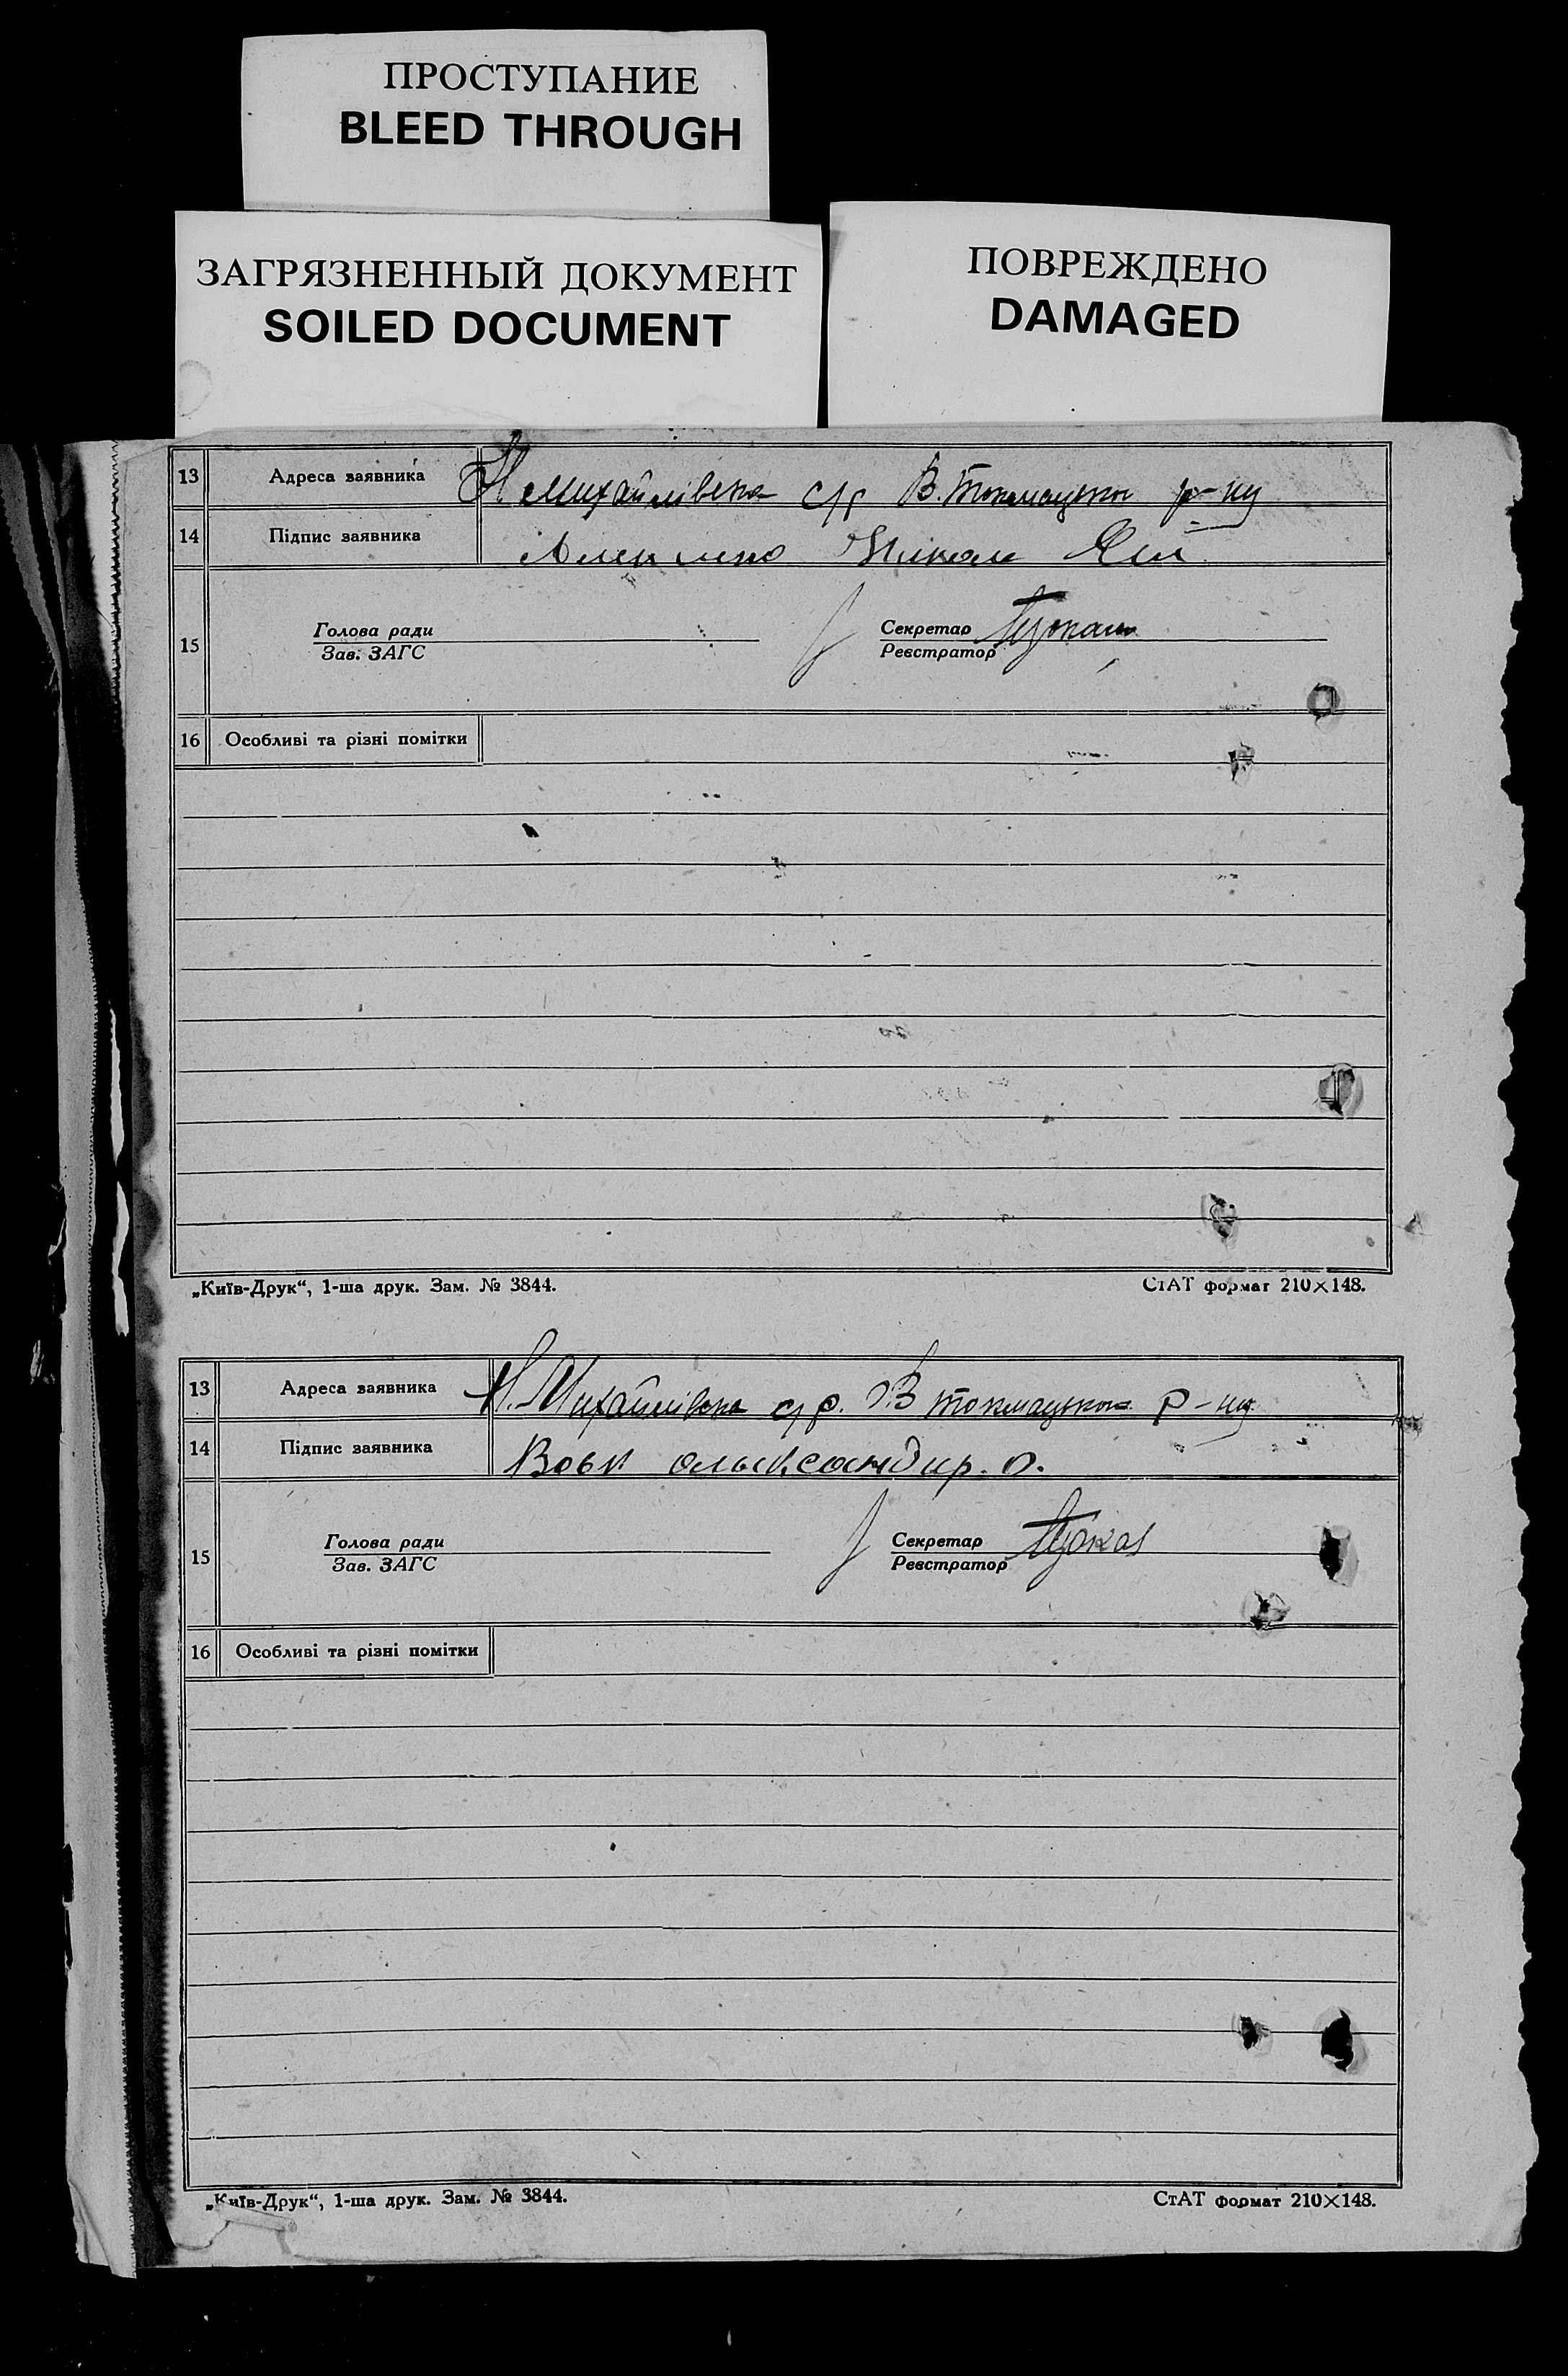 ПРОСТУПАНИЕ
BLEED THROUGH
ЗАГРЯЗНЕННЫЙ ДОКУМЕНТ
SOILED DOCUMENT
ПОВРЕЖДЕНО
DAMAGED
13 Адреса заявника Н Михайлівська с/р В. Токмацького р-ну
14 Підпис заявника
15 Голова ради Секретар
Зав. ЗАГС Реєстратор
16 Особливі та різні помітки
„Київ-Друк“, 1-ша друк. Зам. № 3844. СтАТ формат 210×148.
13 Адреса заявника Н. Михайлівська с/р. В Токмацького р-ну
14 Підпис заявника Вовк
15 Голова ради Секретар
Зав. ЗАГС Реєстратор
16 Особливі та різні помітки
„Київ-Друк“, 1-ша друк. Зам. № 3844. СтАТ формат 210×148.